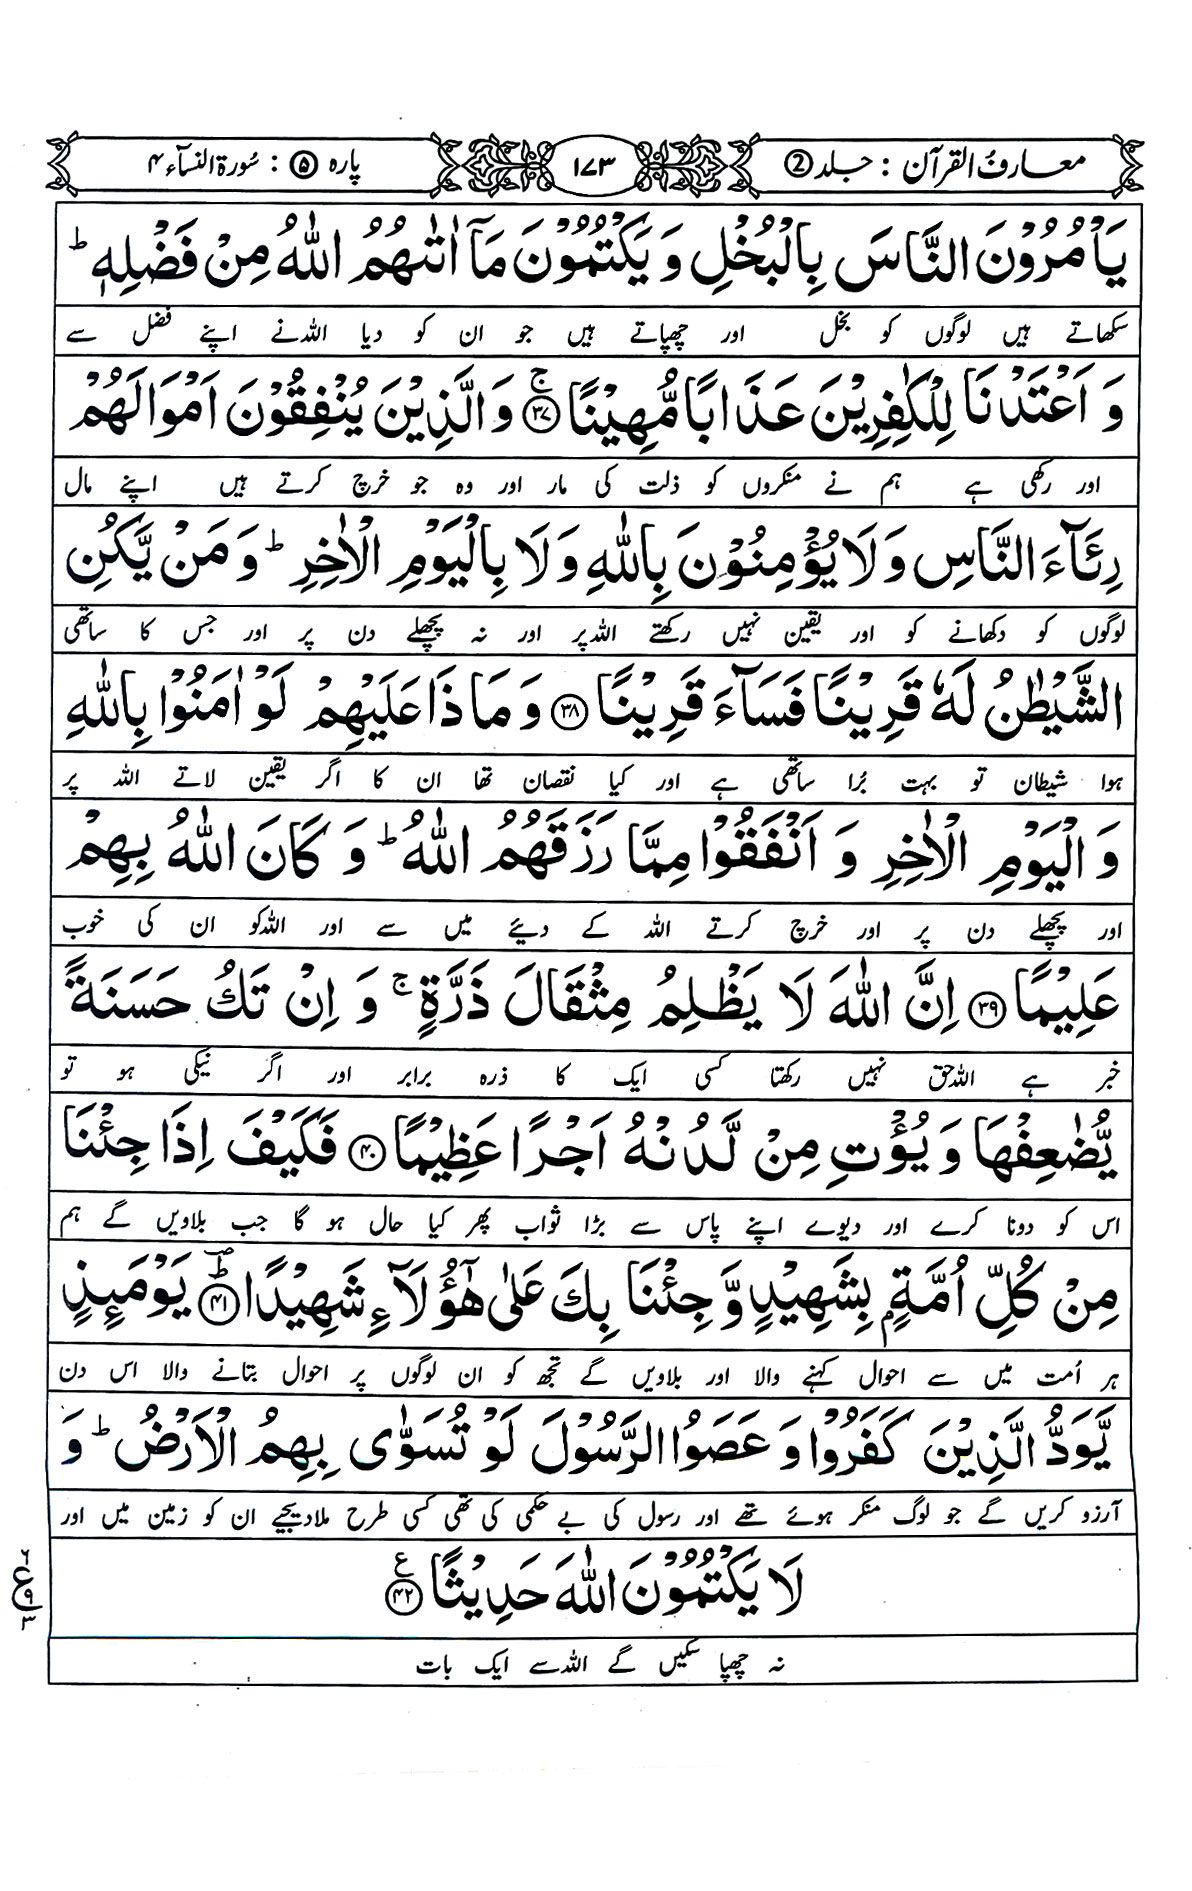 معارفُ القرآن : جلد ②
۱۷۳
پارہ ⑤ : سُورۃ النسآء ۴
یَاْمُرُوْنَ النَّاسَ بِالْبُخْلِ وَ یَكْتُمُوْنَ مَاۤ اٰتٰىهُمُ اللّٰهُ مِنْ فَضْلِهٖ ؕ
سکھاتے ہیں لوگوں کو بخل اور چھپاتے ہیں جو ان کو دیا اللہ نے اپنے فضل سے
وَ اَعْتَدْنَا لِلْكٰفِرِیْنَ عَذَابًا مُّهِیْنًا ۚ ﴿۳۷﴾ وَالَّذِیْنَ یُنْفِقُوْنَ اَمْوَالَهُمْ
اور رکھی ہے ہم نے منکروں کو ذلت کی مار اور وہ جو خرچ کرتے ہیں اپنے مال
رِئَآءَ النَّاسِ وَلَا یُؤْمِنُوْنَ بِاللّٰهِ وَلَا بِالْیَوْمِ الْاٰخِرِ ؕ وَ مَنْ یَّكُنِ
لوگوں کو دکھانے کو اور یقین نہیں رکھتے اللہ پر اور نہ پچھلے دن پر اور جس کا ساتھی
الشَّیْطٰنُ لَهٗ قَرِیْنًا فَسَآءَ قَرِیْنًا ﴿۳۸﴾ وَ مَا ذَا عَلَیْهِمْ لَوْ اٰمَنُوْا بِاللّٰهِ
ہوا شیطان تو بہت بُرا ساتھی ہے اور کیا نقصان تھا ان کا اگر یقین لاتے اللہ پر
وَ الْیَوْمِ الْاٰخِرِ وَ اَنْفَقُوْا مِمَّا رَزَقَهُمُ اللّٰهُ ؕ وَ كَانَ اللّٰهُ بِهِمْ
اور پچھلے دن پر اور خرچ کرتے اللہ کے دیئے میں سے اور اللہ کو ان کی خوب
عَلِیْمًا ﴿۳۹﴾ اِنَّ اللّٰهَ لَا یَظْلِمُ مِثْقَالَ ذَرَّةٍ ۚ وَ اِنْ تَكُ حَسَنَةً
خبر ہے اللہ حق نہیں رکھتا کسی ایک کا ذرہ برابر اور اگر نیکی ہو تو
یُّضٰعِفْهَا وَ یُؤْتِ مِنْ لَّدُنْهُ اَجْرًا عَظِیْمًا ﴿۴۰﴾ فَكَیْفَ اِذَا جِئْنَا
اس کو دونا کرے اور دیوے اپنے پاس سے بڑا ثواب پھر کیا حال ہو گا جب بلاویں گے ہم
مِنْ كُلِّ اُمَّةٍۭ بِشَهِیْدٍ وَّ جِئْنَا بِكَ عَلٰى هٰۤؤُلَآءِ شَهِیْدًا ﴿۴۱﴾ ؕؔ یَوْمَئِذٍ
ہر اُمت میں سے احوال کہنے والا اور بلاویں گے تجھ کو ان لوگوں پر احوال بتانے والا اس دن
یَّوَدُّ الَّذِیْنَ كَفَرُوْا وَ عَصَوُا الرَّسُوْلَ لَوْ تُسَوّٰى بِهِمُ الْاَرْضُ ؕ وَ
آرزو کریں گے جو لوگ منکر ہوئے تھے اور رسول کی بے حکمی کی تھی کسی طرح ملادیجیے ان کو زمین میں اور
لَا یَكْتُمُوْنَ اللّٰهَ حَدِیْثًا ﴿۴۲﴾ ع
۶ ع ۹ ۳
نہ چھپا سکیں گے اللہ سے ایک بات